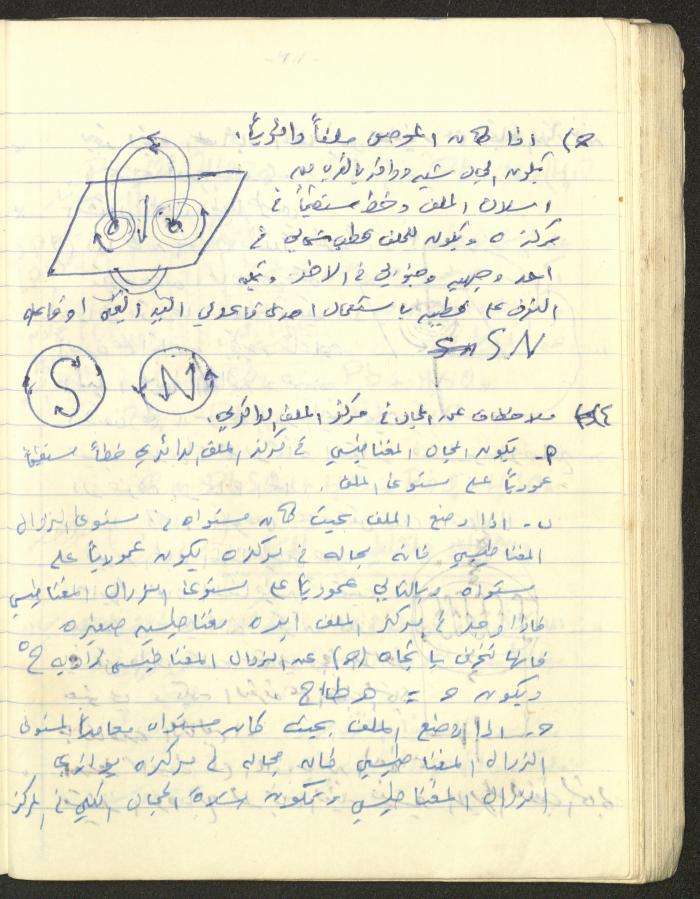 ح) اذا كان الموصل ملفاً دائرياً:
يكون المجال شبه دوائر بالقرب من
اسلاك الملف وخط مستقيماً في
مركزه ويكون للملف قطب شمالي في
احد وجهيه وجنوبي في الاخر ويمكن
التعرف على قطبيه باستعمال احدى قاعدتي اليد اليمنى او قاعدة
S N
S N
٤) ملاحظات عن المجال في مركز الملف الدائري:
٩- يكون المجال المغناطيسي في مركز الملف الدائري خطاً مستقيماً
عمودياً على مستوى الملف.
ب- اذا وضع الملف بحيث كان مستواه في مستوى الزوال
المغناطيسي فانه مجاله في مركزه يكون عمودياً على
مستواه وبالتالي عمودياً على مستوى الزوال المغناطيسي
فاذا وجد في مركز الملف ابرة مغناطيسية صغيرة
فانها تنحرف باتجاه (ح) عن الزوال المغناطيسي بزاوية
ويكون ح = هـ ظا
ح- اذا وضع الملف بحيث كان مستواه معامداً لمستوى
الزوال المغناطيسي فان مجاله في مركزه يوازي
الزوال المغناطيسي وتكون شدة المجال الكلي في المركز